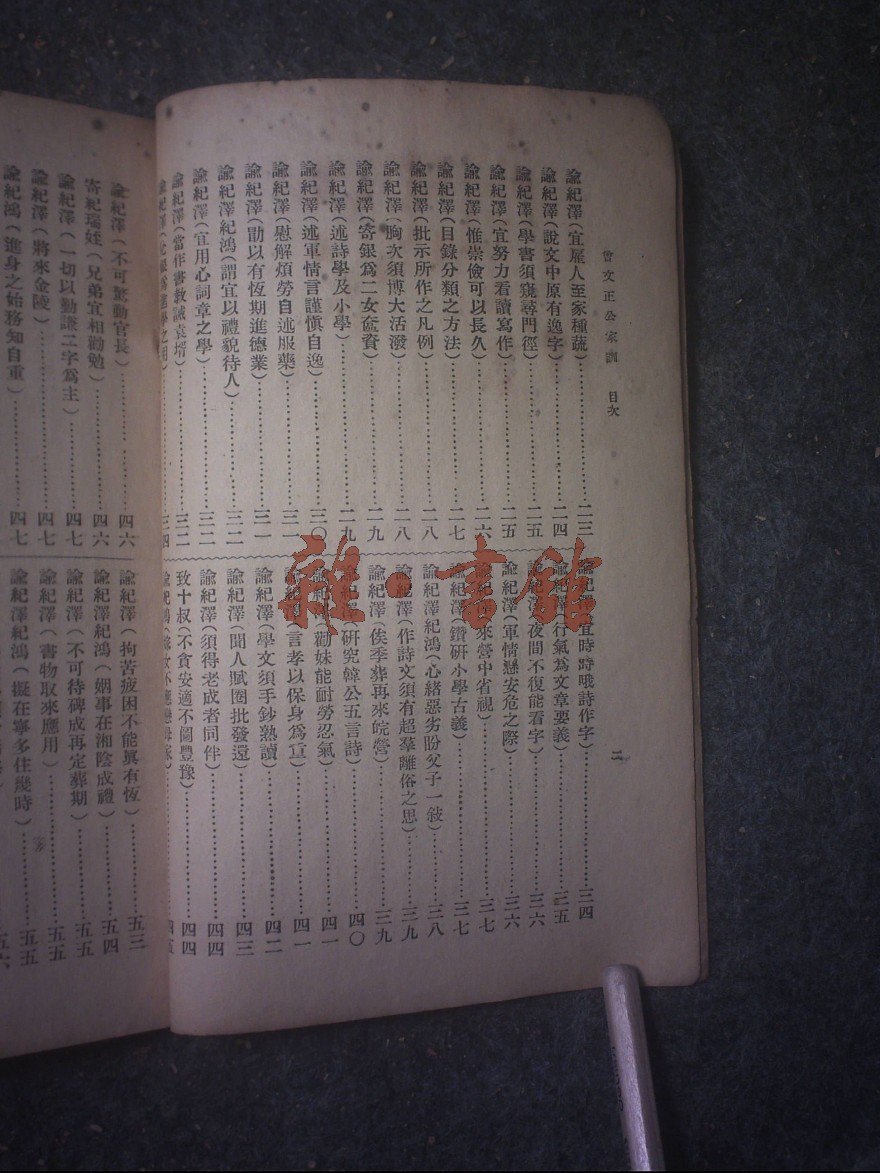 曾文正公家訓　目次
二
諭紀澤（宜雇人至家種蔬）……二三
諭紀澤（說文中原有逸字）……二四
諭紀澤（學書須窺尋門徑）……二五
諭紀澤（宜努力看讀寫作）……二五
諭紀澤（惟崇儉可以長久）……二六
諭紀澤（目錄分類之方法）……二七
諭紀澤（批示所作之凡例）……二八
諭紀澤（胸次須博大活潑）……二八
諭紀澤（寄銀爲二女奩資）……二九
諭紀澤（述詩學及小學）……二九
諭紀澤（述軍情言謹愼自逸）……三〇
諭紀澤（慰解煩勞自述服藥）……三一
諭紀澤（勖以有恆期進德業）……三一
諭紀澤紀鴻（謂宜以禮貌待人）……三二
諭紀澤（宜用心詞章之學）……三二
諭紀澤（當作書敎誡袁壻）……三二
三四
諭紀澤（宜時時哦詩作字）……三四
諭紀澤（行氣爲文章要義）……三五
諭紀澤（夜間不復能看字）……三六
諭紀澤（軍情懸安危之際）……三六
來營中省視）……三七
諭紀澤（鑽研小學古義）……三七
諭紀澤紀鴻（心緒惡劣盼父子一敍）……三八
諭紀澤（作詩文須有超羣離俗之思）……三九
諭紀澤（俟季葬再來皖營）……三九
諭紀澤（研究韓公五言詩）……四〇
勸妹能耐勞忍氣）……四一
言孝以保身爲重）……四一
諭紀澤（學文須手鈔熟讀）……四二
諭紀澤（聞人賦圈批發還）……四三
諭紀澤（須得老成者同伴）……四四
致十叔（不貪安適不圖豐豫）……四四
四五
諭紀澤（不可驚動官長）……四六
寄紀瑞姪（兄弟宜相勸勉）……四六
諭紀澤（一切以勤謙二字爲主）……四七
諭紀澤（將來金陵）……四七
諭紀鴻（進身之始務知自重）……四七
諭紀澤（拘苦疲困不能眞有恆）……五三
諭紀澤紀鴻（姻事在湘陰成禮）……五四
諭紀澤（不可待碑成再定葬期）……五五
諭紀澤（書物取來應用）……五五
諭紀澤紀鴻（擬在寧多住幾時）……五五
五六
雜·書館